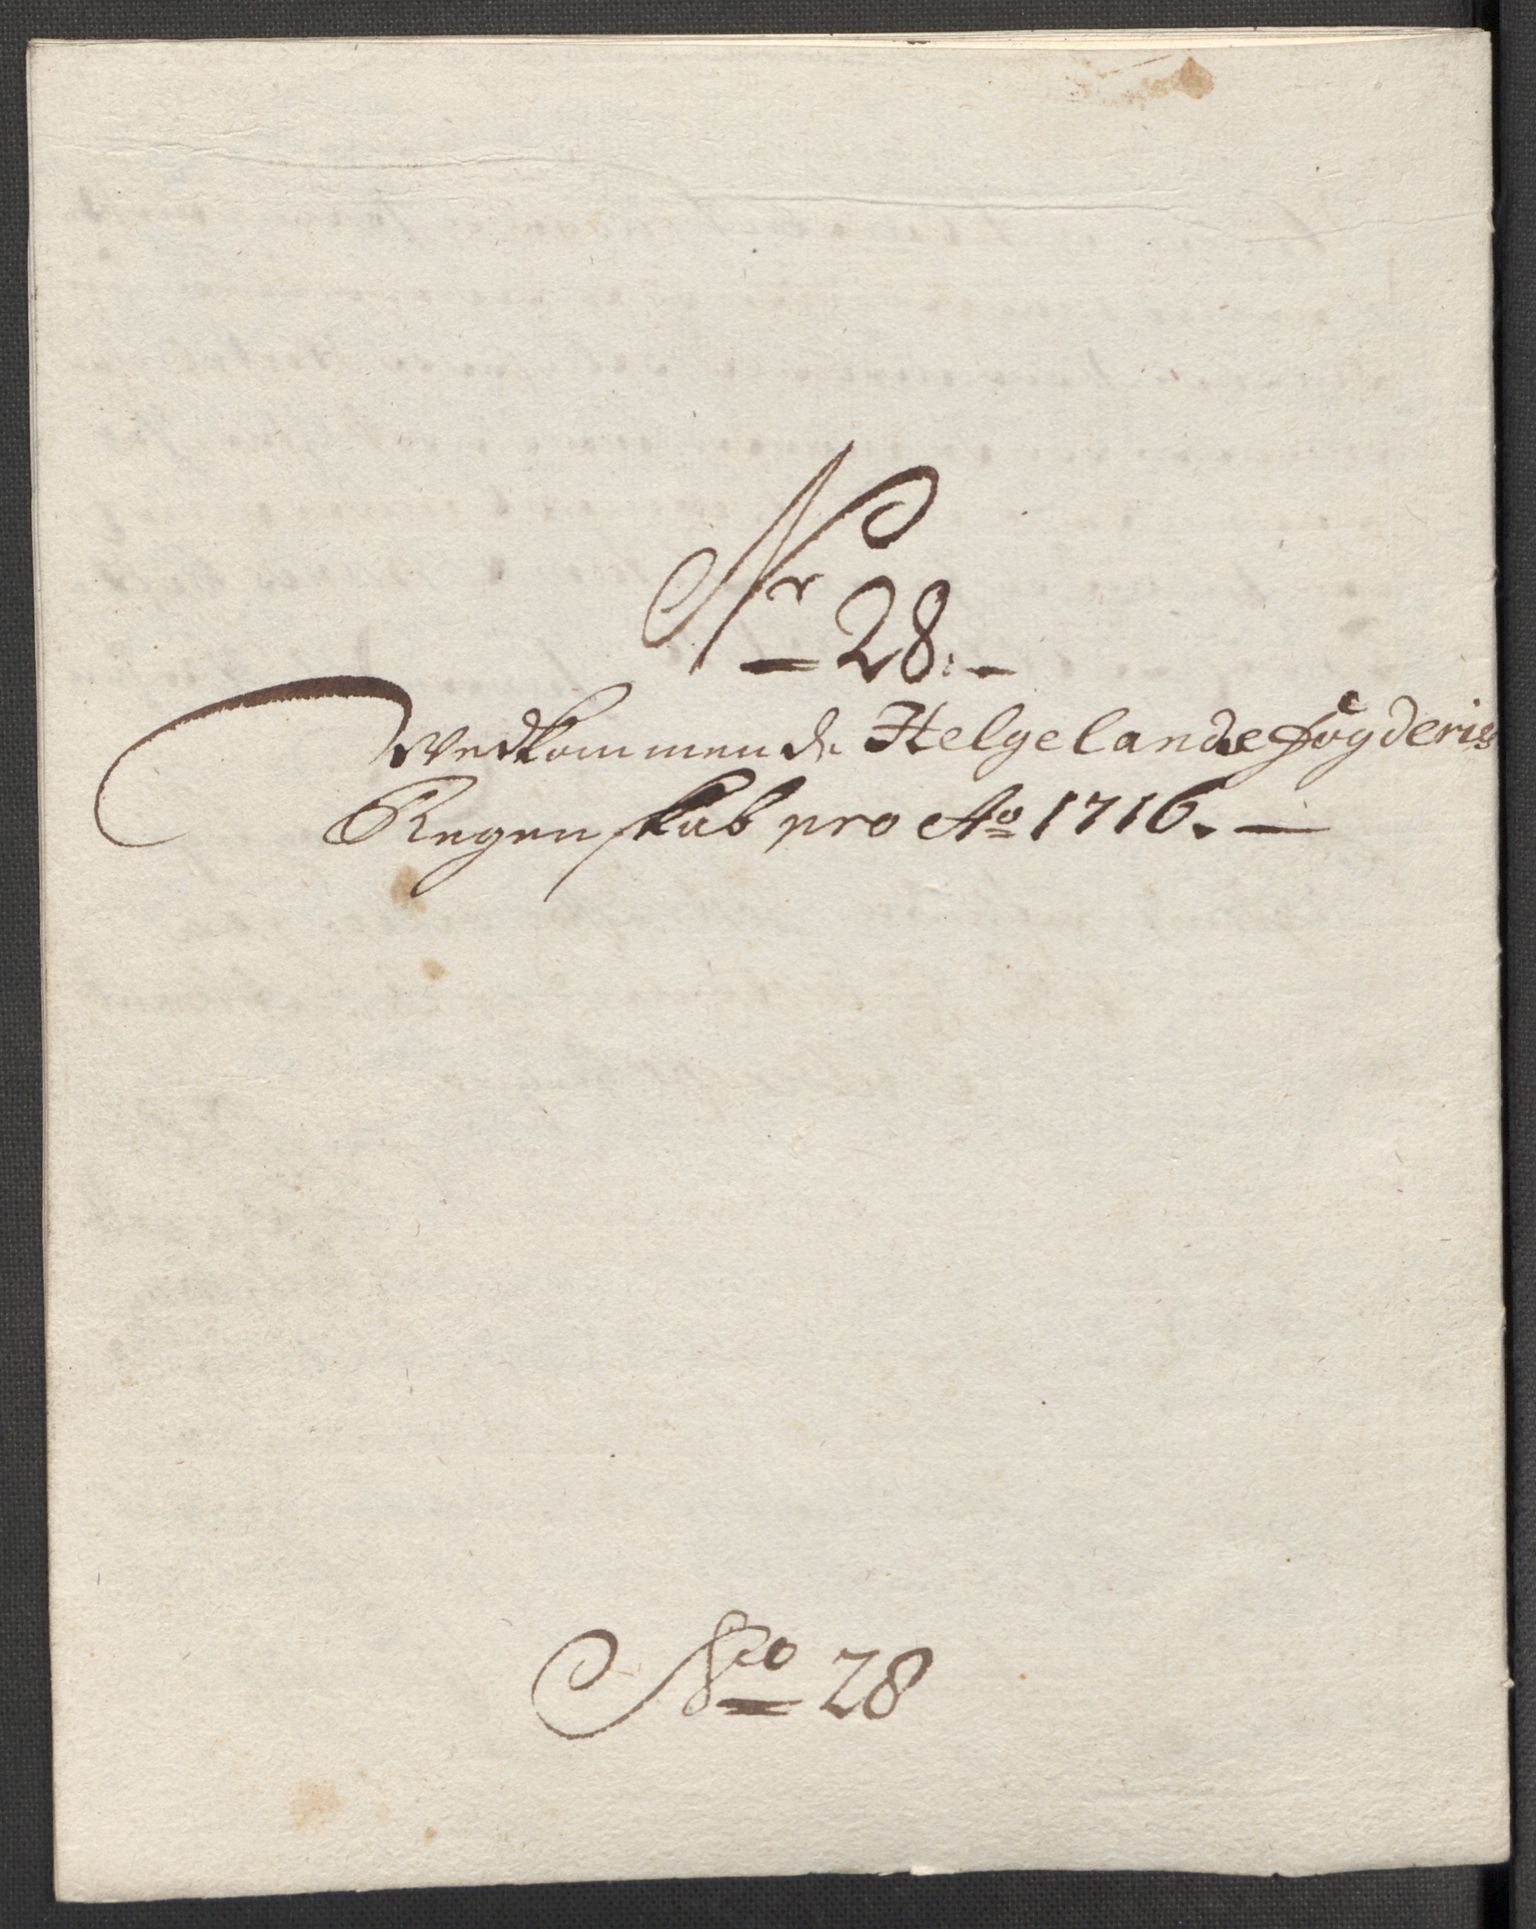 Nr 28.
Vedkommende Helgelands fogderies
Regenskab pro Ao 1716.
No 28